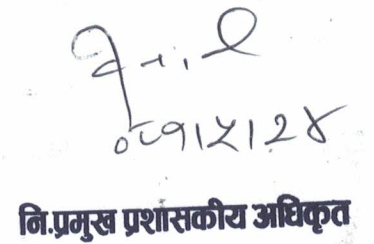 ०८१।५।२४
नि.प्रमुख प्रशासकीय अधिकृत